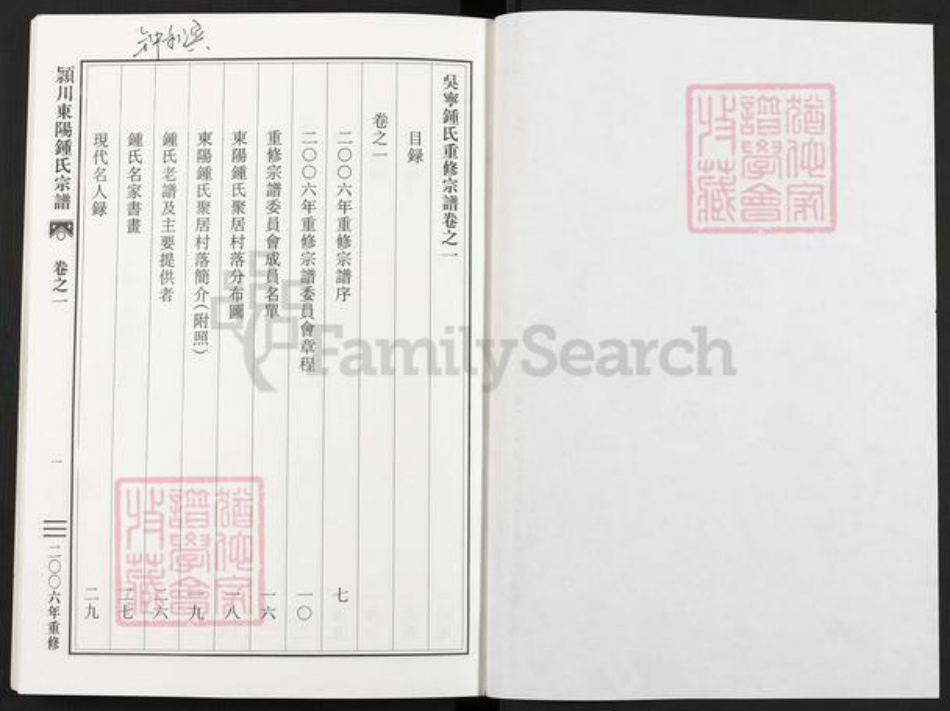 吳寧鍾氏重修宗譜卷之一
目録
卷之一
二〇〇六年重修宗譜序 七
二〇〇六年重修宗譜委員會章程 一〇
重修宗譜委員會成員名單 一六
東陽鍾氏聚居村落分布圖 一八
東陽鍾氏聚居村落簡介(附照) 一九
鍾氏老譜及主要提供者 二六
鍾氏名家書畫 二七
現代名人録 二九
潁川東陽鍾氏宗譜 卷之一 一 二〇〇六年重修
FamilySearch